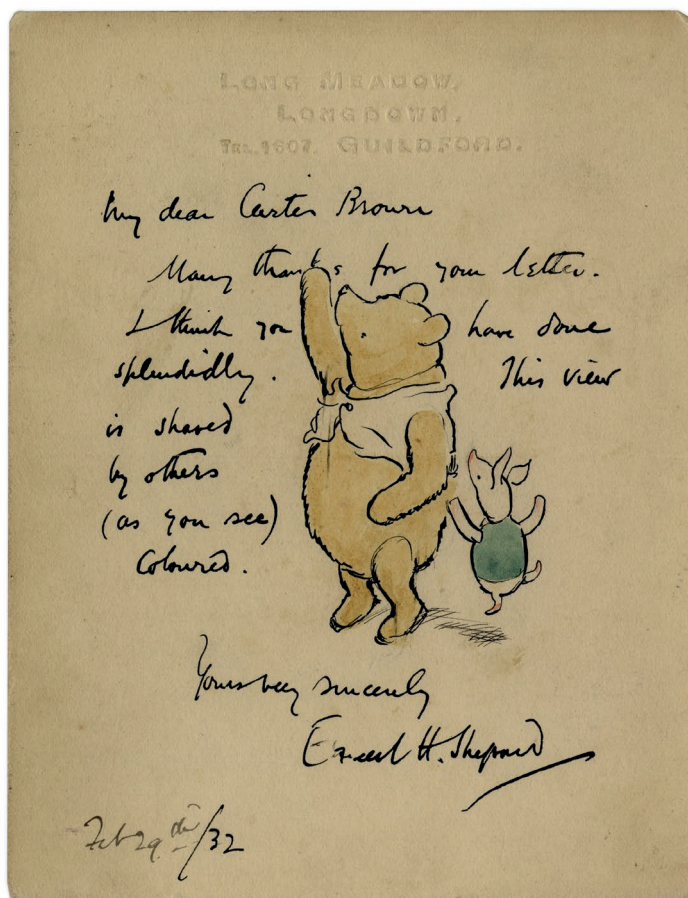 LONG MEADOW,
LONGDOWN,
TEL. 1607. GUILDFORD.
My dear Carter Brown
Many thanks for your letter.
I think you have done
splendidly. This view
is shared
by others
(as you see)
Coloured.
Yours very sincerely
Ernest H. Shepard
Feb 29th/32